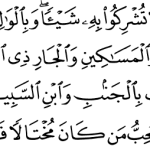 تُشْرِكُوا۟ بِهِۦ شَيْـًٔا ۖ وَبِٱلْوَٰلِ
ٱلْمَسَـٰكِينِ وَٱلْجَارِ ذِى ٱ
بِٱلْجَنۢبِ وَٱبْنِ ٱلسَّبِي
يُحِبُّ مَن كَانَ مُخْتَالًا فَ